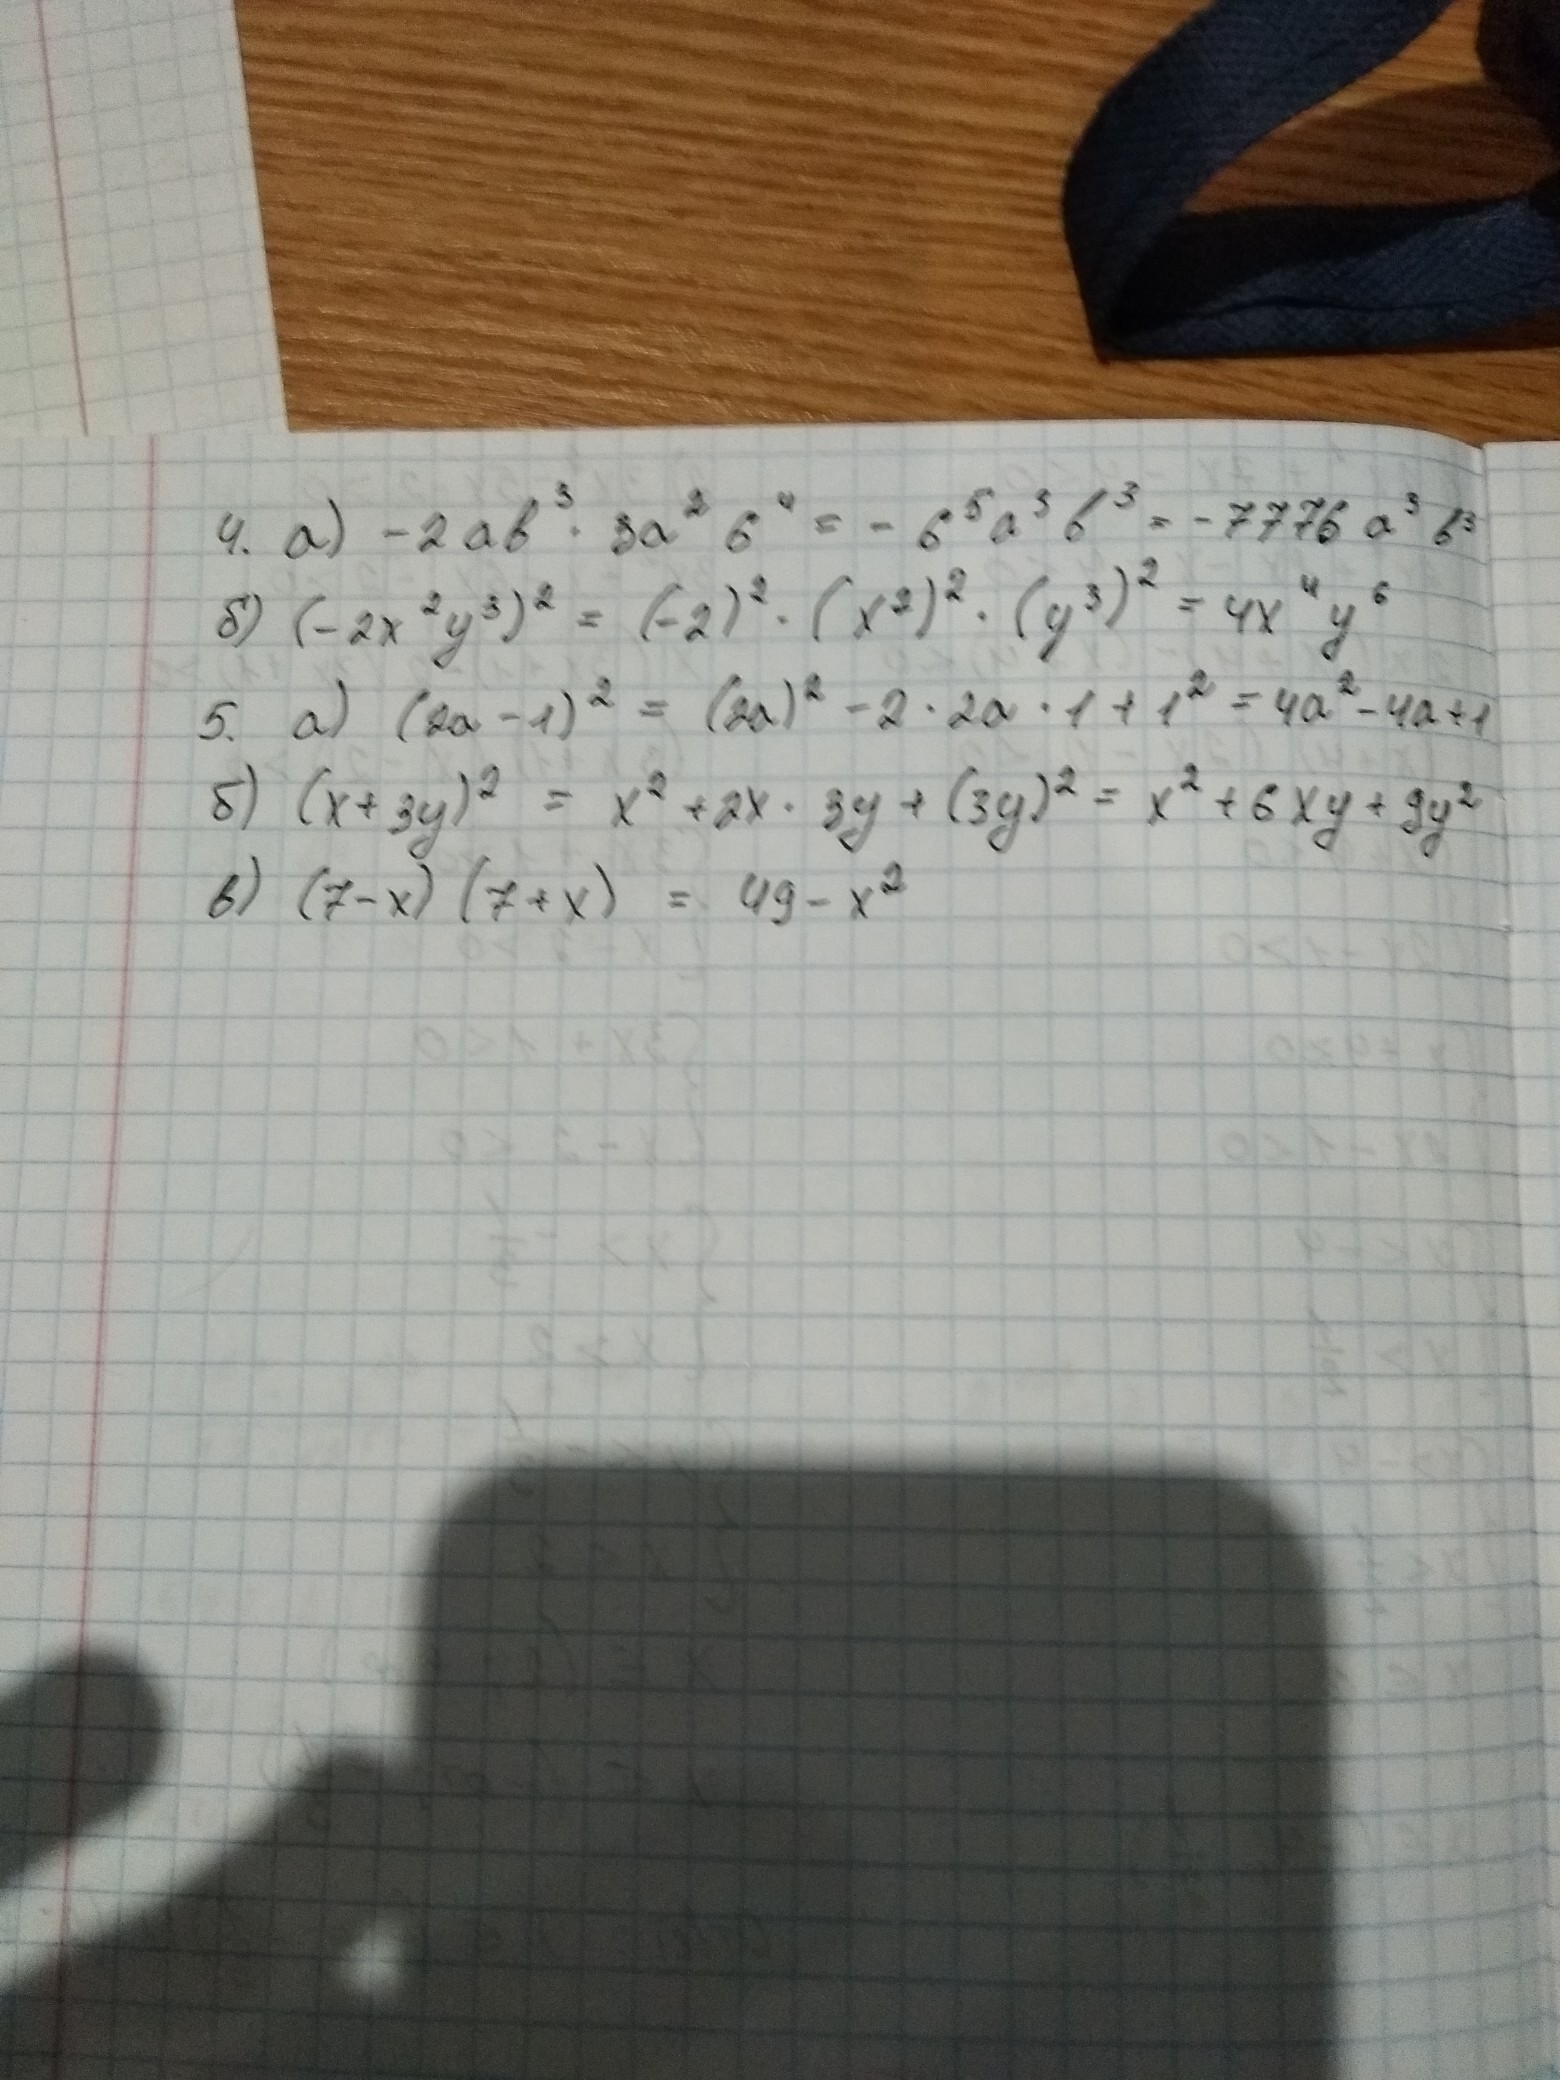 4. а) -2ab³ · 3a² 6⁴ = - 6⁵a³b³ = -7776 a³b³
б) (-2x²y³)² = (-2)² · (x²)² · (y³)² = 4x⁴y⁶
5. а) (2a-1)² = (2a)² - 2 · 2a · 1 + 1² = 4a² - 4a + 1
б) (x+3y)² = x² + 2x · 3y + (3y)² = x² + 6xy + 9y²
в) (7-x) (7+x) = 49 - x²